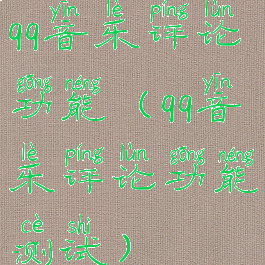 yīn lè píng lùn
qq音乐评论
gōng néng yīn
功能（qq音
lè píng lùn gōng néng
乐评论功能
cè shì
测试）